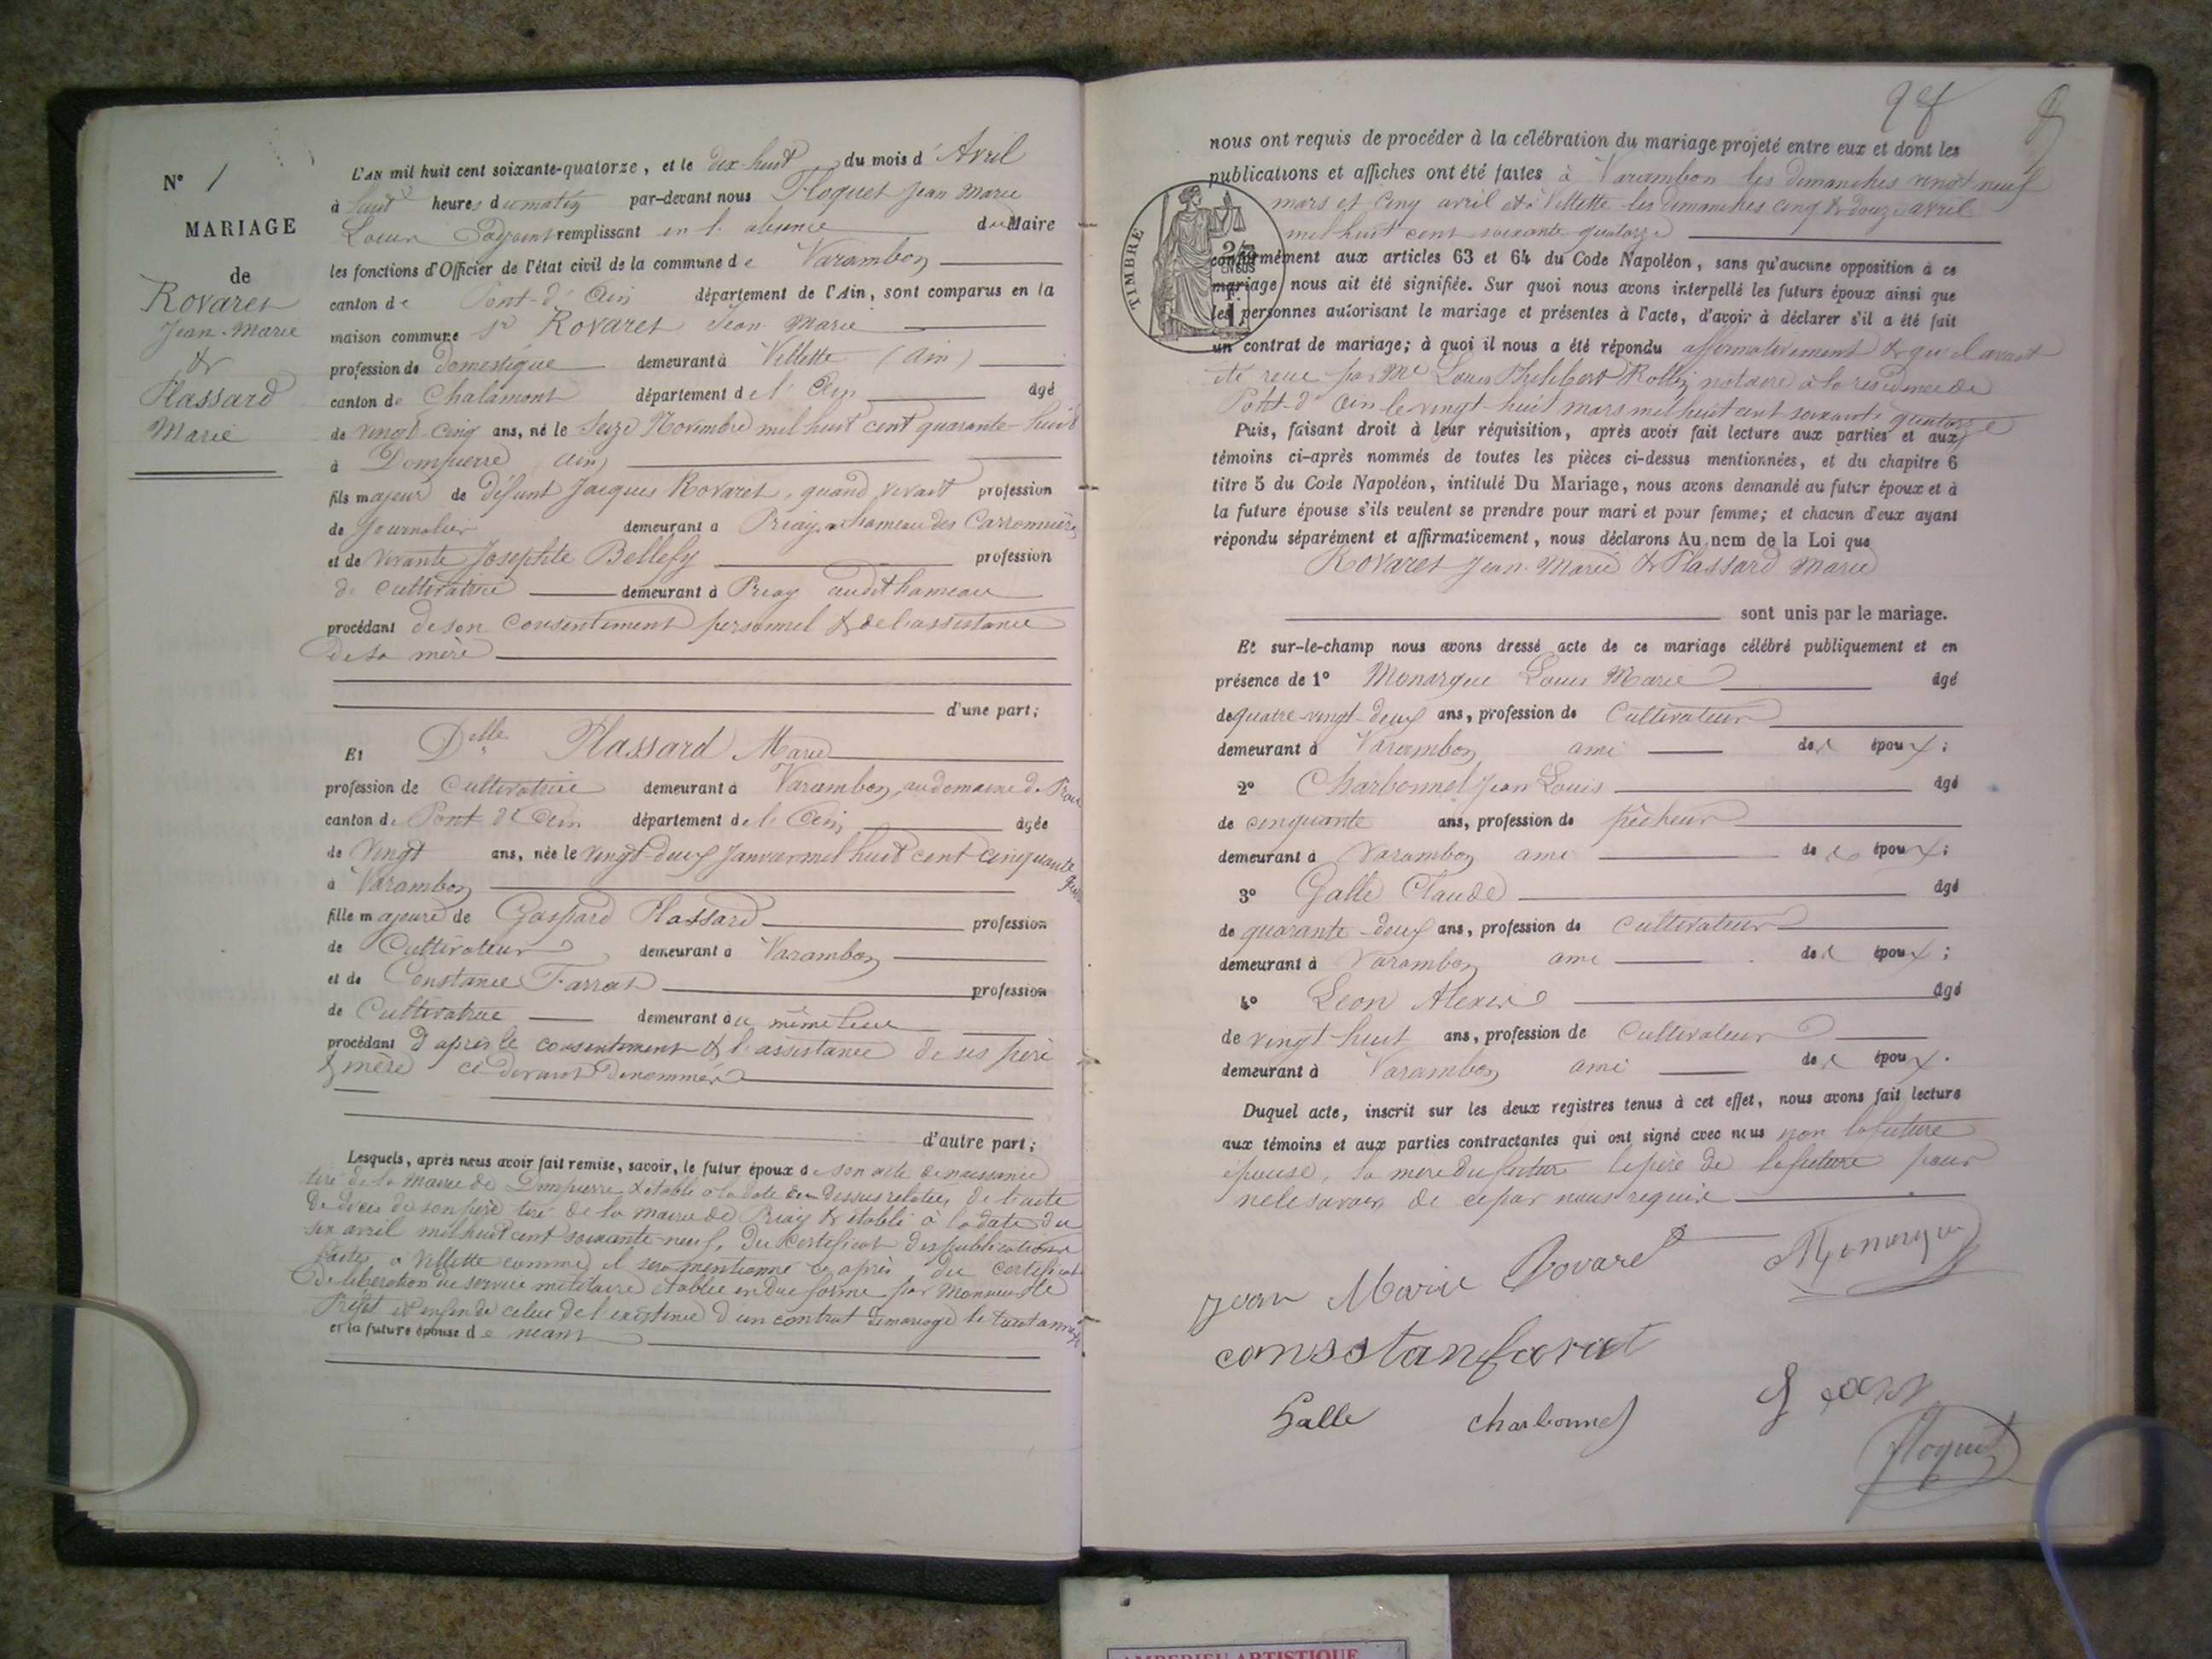 N° 1
MARIAGE
de
Rovaret
Jean-Marie
&
Plassard
Marie
L'AN mil huit cent soixante-quatorze, et le dix-huit du mois d'Avril
à huit heures du matin par-devant nous Floquet Jean Marie
Louis adjoint remplissant en l'absence du Maire
les fonctions d'Officier de l'état civil de la commune de Varambon
canton de Pont-d'Ain département de l'Ain, sont comparus en la
maison commune Sr Rovaret Jean Marie
profession de domestique demeurant à Villette (Ain)
canton de Chalamont département de l'Ain âgé
de vingt-cinq ans, né le Seize Novembre mil huit cent quarante-huit
à Dompierre (Ain)
fils majeur de défunt Jacques Rovaret, quand vivait profession
de journalier demeurant a Priay, hameau des Carronnières
et de vivante Josephte Bellefy profession
de cultivatrice demeurant à Priay audit hameau
procédant de son consentement personnel & de l'assistance
de sa mère
d'une part;
Et Delle Plassard Marie
profession de Cultivatrice demeurant à Varambon, au domaine de
canton de Pont d'Ain département de l'Ain âgée
de vingt ans, née le vingt-deux janvier mil huit cent cinquante
à Varambon
fille majeure de Gaspard Plassard profession
de Cultivateur demeurant a Varambon
et de Constance Farrat profession
de Cultivatrice demeurant au même lieu
procédant d'après le consentement & l'assistance de ses père
& mère ci devant dénommés
d'autre part;
Lesquels, après nous avoir fait remise, savoir, le futur époux de son acte de naissance
tiré de la mairie de Dompierre & établi à la date ci dessus relatée, de l'acte
de décès de son père tiré de la mairie de Priay & établi à la date du
six avril mil huit cent soixante-neuf, du certificat des publications
faites à Villette comme il sera mentionné ci après du certificat
de libération du service militaire établie en due forme par Monsieur le
Préfet et enfin de celui de l'existence d'un contrat de mariage le tout annexé
et la future épouse de néant
98
nous ont requis de procéder à la célébration du mariage projeté entre eux et dont les
publications et affiches ont été faites à Varambon les dimanches vingt neuf
mars et cinq avril et à Villette les dimanches cinq & douze avril
mil huit cent soixante quatorze
TIMBRE
conformément aux articles 63 et 64 du Code Napoléon, sans qu'aucune opposition à ce
mariage nous ait été signifiée. Sur quoi nous avons interpellé les futurs époux ainsi que
les personnes autorisant le mariage et présentes à l'acte, d'avoir à déclarer s'il a été fait
un contrat de mariage; à quoi il nous a été répondu affirmativement & qu'il avait
été reçu par Me Louis Philibert Rollin notaire à la résidence de
Pont-d'Ain le vingt-huit mars mil huit cent soixante quatorze
Puis, faisant droit à leur réquisition, après avoir fait lecture aux parties et aux
témoins ci-après nommés de toutes les pièces ci-dessus mentionnées, et du chapitre 6
titre 5 du Code Napoléon, intitulé Du Mariage, nous avons demandé au futur époux et à
la future épouse s'ils veulent se prendre pour mari et pour femme; et chacun d'eux ayant
répondu séparément et affirmativement, nous déclarons Au nom de la Loi que
Rovaret Jean-Marie & Plassard Marie
sont unis par le mariage.
Et sur-le-champ nous avons dressé acte de ce mariage célébré publiquement et en
présence de 1° Monarque Louis Marie âgé
de quatre-vingt-deux ans, profession de Cultivateur
demeurant à Varambon ami des époux;
2° Charbonnel Jean Louis âgé
de cinquante ans, profession de pêcheur
demeurant à Varambon ami des époux;
3° Galle Claude âgé
de quarante-deux ans, profession de Cultivateur
demeurant à Varambon ami des époux;
4° Leon Alexis âgé
de vingt-huit ans, profession de Cultivateur
demeurant à Varambon ami des époux.
Duquel acte, inscrit sur les deux registres tenus à cet effet, nous avons fait lecture
aux témoins et aux parties contractantes qui ont signé avec nous non la future
épouse, la mère du futur le père de la future pour
ne le savoir de ce par nous requis
Jean Marie Rovaret Monarque
consstanfarat
Galle charbonnel Leon
Floquet
AMBERIEU ARTISTIQUE